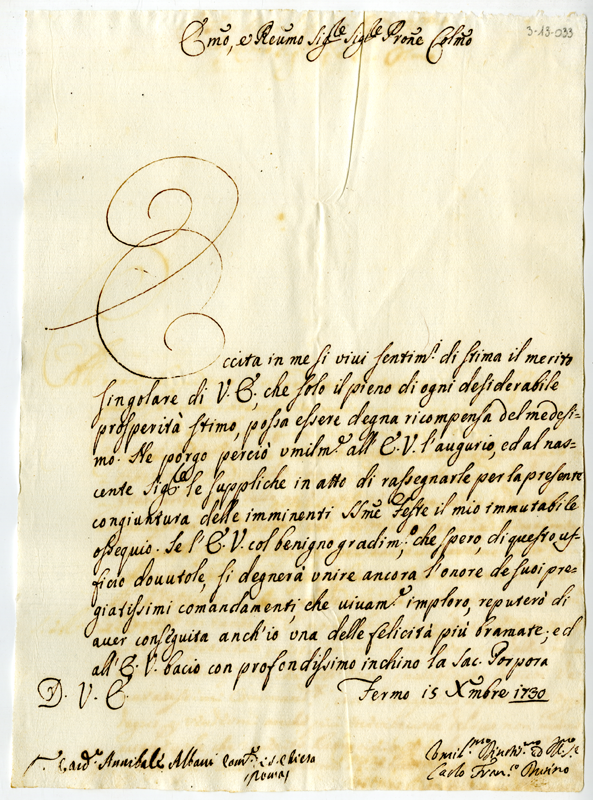 3-13-033
Emo, e Reumo Sigre Sigre Prone Colmo
Eccita in me si vivi sentimti di stima il merito
singolare di V. E., che solo il pieno di ogni desiderabile
prosperità stimo, possa essere degna ricompensa del medesi-
mo. Ne porgo perciò vmilmte all' E. V. l'augurio, ed al nas-
cente Sigre le suppliche in atto di rassegnarle per la presente
congiuntura delle imminenti SSme Feste il mio immutabile
ossequio. Se l'E. V. col benigno gradimto, che spero, di questo uf-
ficio dovutole, si degnerà vnire ancora l'onore de suoi pre-
giatissimi comandamenti, che vivamte imploro, reputerò di
aver conseguita anch'io vna delle felicità più bramate; ed
all' E. V. bacio con profondissimo inchino la Sac. Porpora
D. V. E. Fermo 15 Xmbre 1730
Card. Annibale Albani Cam. S. Chiesa
Roma
Carlo Fran.co